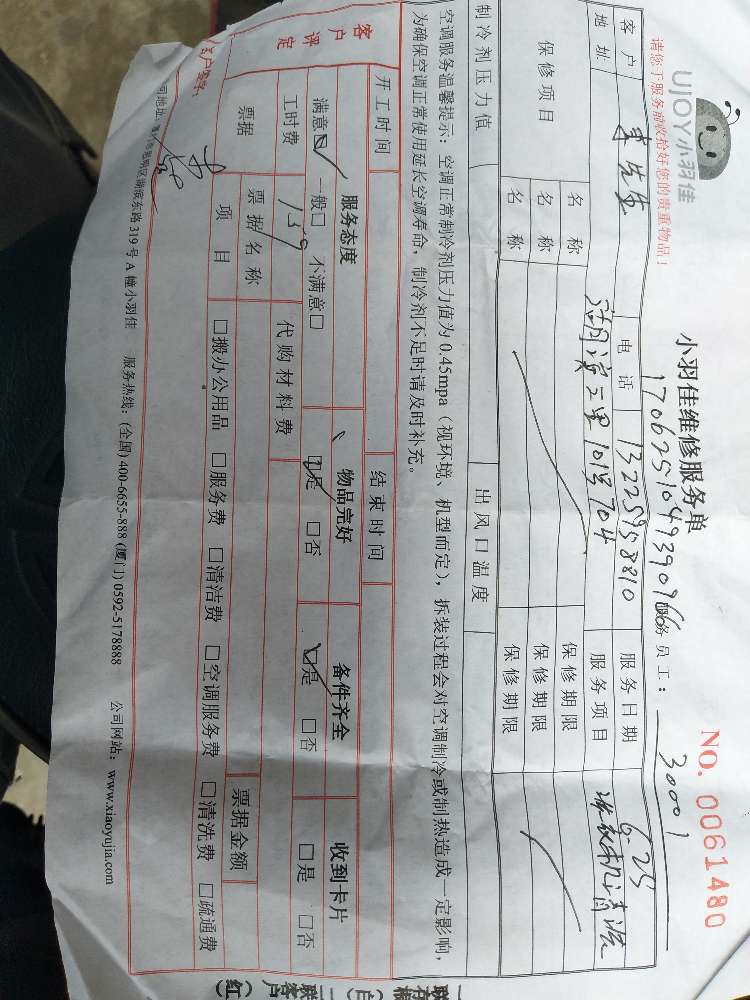 UJOY小羽佳
请您于服务前收拾好您的贵重物品！
小羽佳维修服务单
NO. 0061480
170625104939096
服务员工： 30001
客户 李先生 电话 13225958810 服务日期 6.25
地址 湖滨二里101号704 服务项目 洗衣机清洗
保修项目 名称 保修期限
名称 保修期限
名称 保修期限
制冷剂压力值 出风口温度
空调服务温馨提示：空调正常制冷剂压力值为0.45mpa（视环境、机型而定），拆装过程会对空调制冷或制热造成一定影响，
为确保空调正常使用延长空调寿命，制冷剂不足时请及时补充。
开工时间 结束时间
客户评定 服务态度 物品完好 备件齐全 收到卡片
满意☑ 一般□ 不满意□ ☑是 □否 ☑是 □否 □是 □否
工时费 139 代购材料费
票据 票据名称 票据金额
项目 □搬办公用品 □服务费 □清洁费 □空调服务费 □清洗费 □疏通费
客户签字：
公司地址：厦门市思明区湖滨东路319号A幢小羽佳 服务热线：(全国) 400-6655-888 (厦门) 0592-5178888 公司网站：www.xiaoyujia.com
一联存根（白）
二联客户（红）